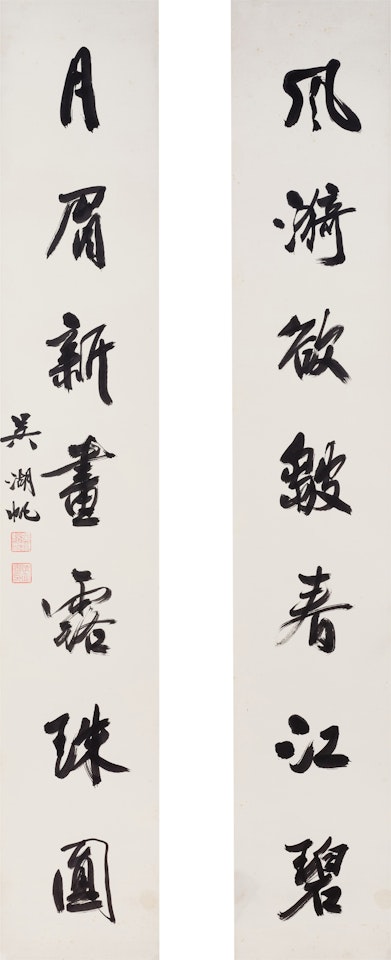 風漪欲皺春江碧
月眉新畫露珠圓
吳湖帆